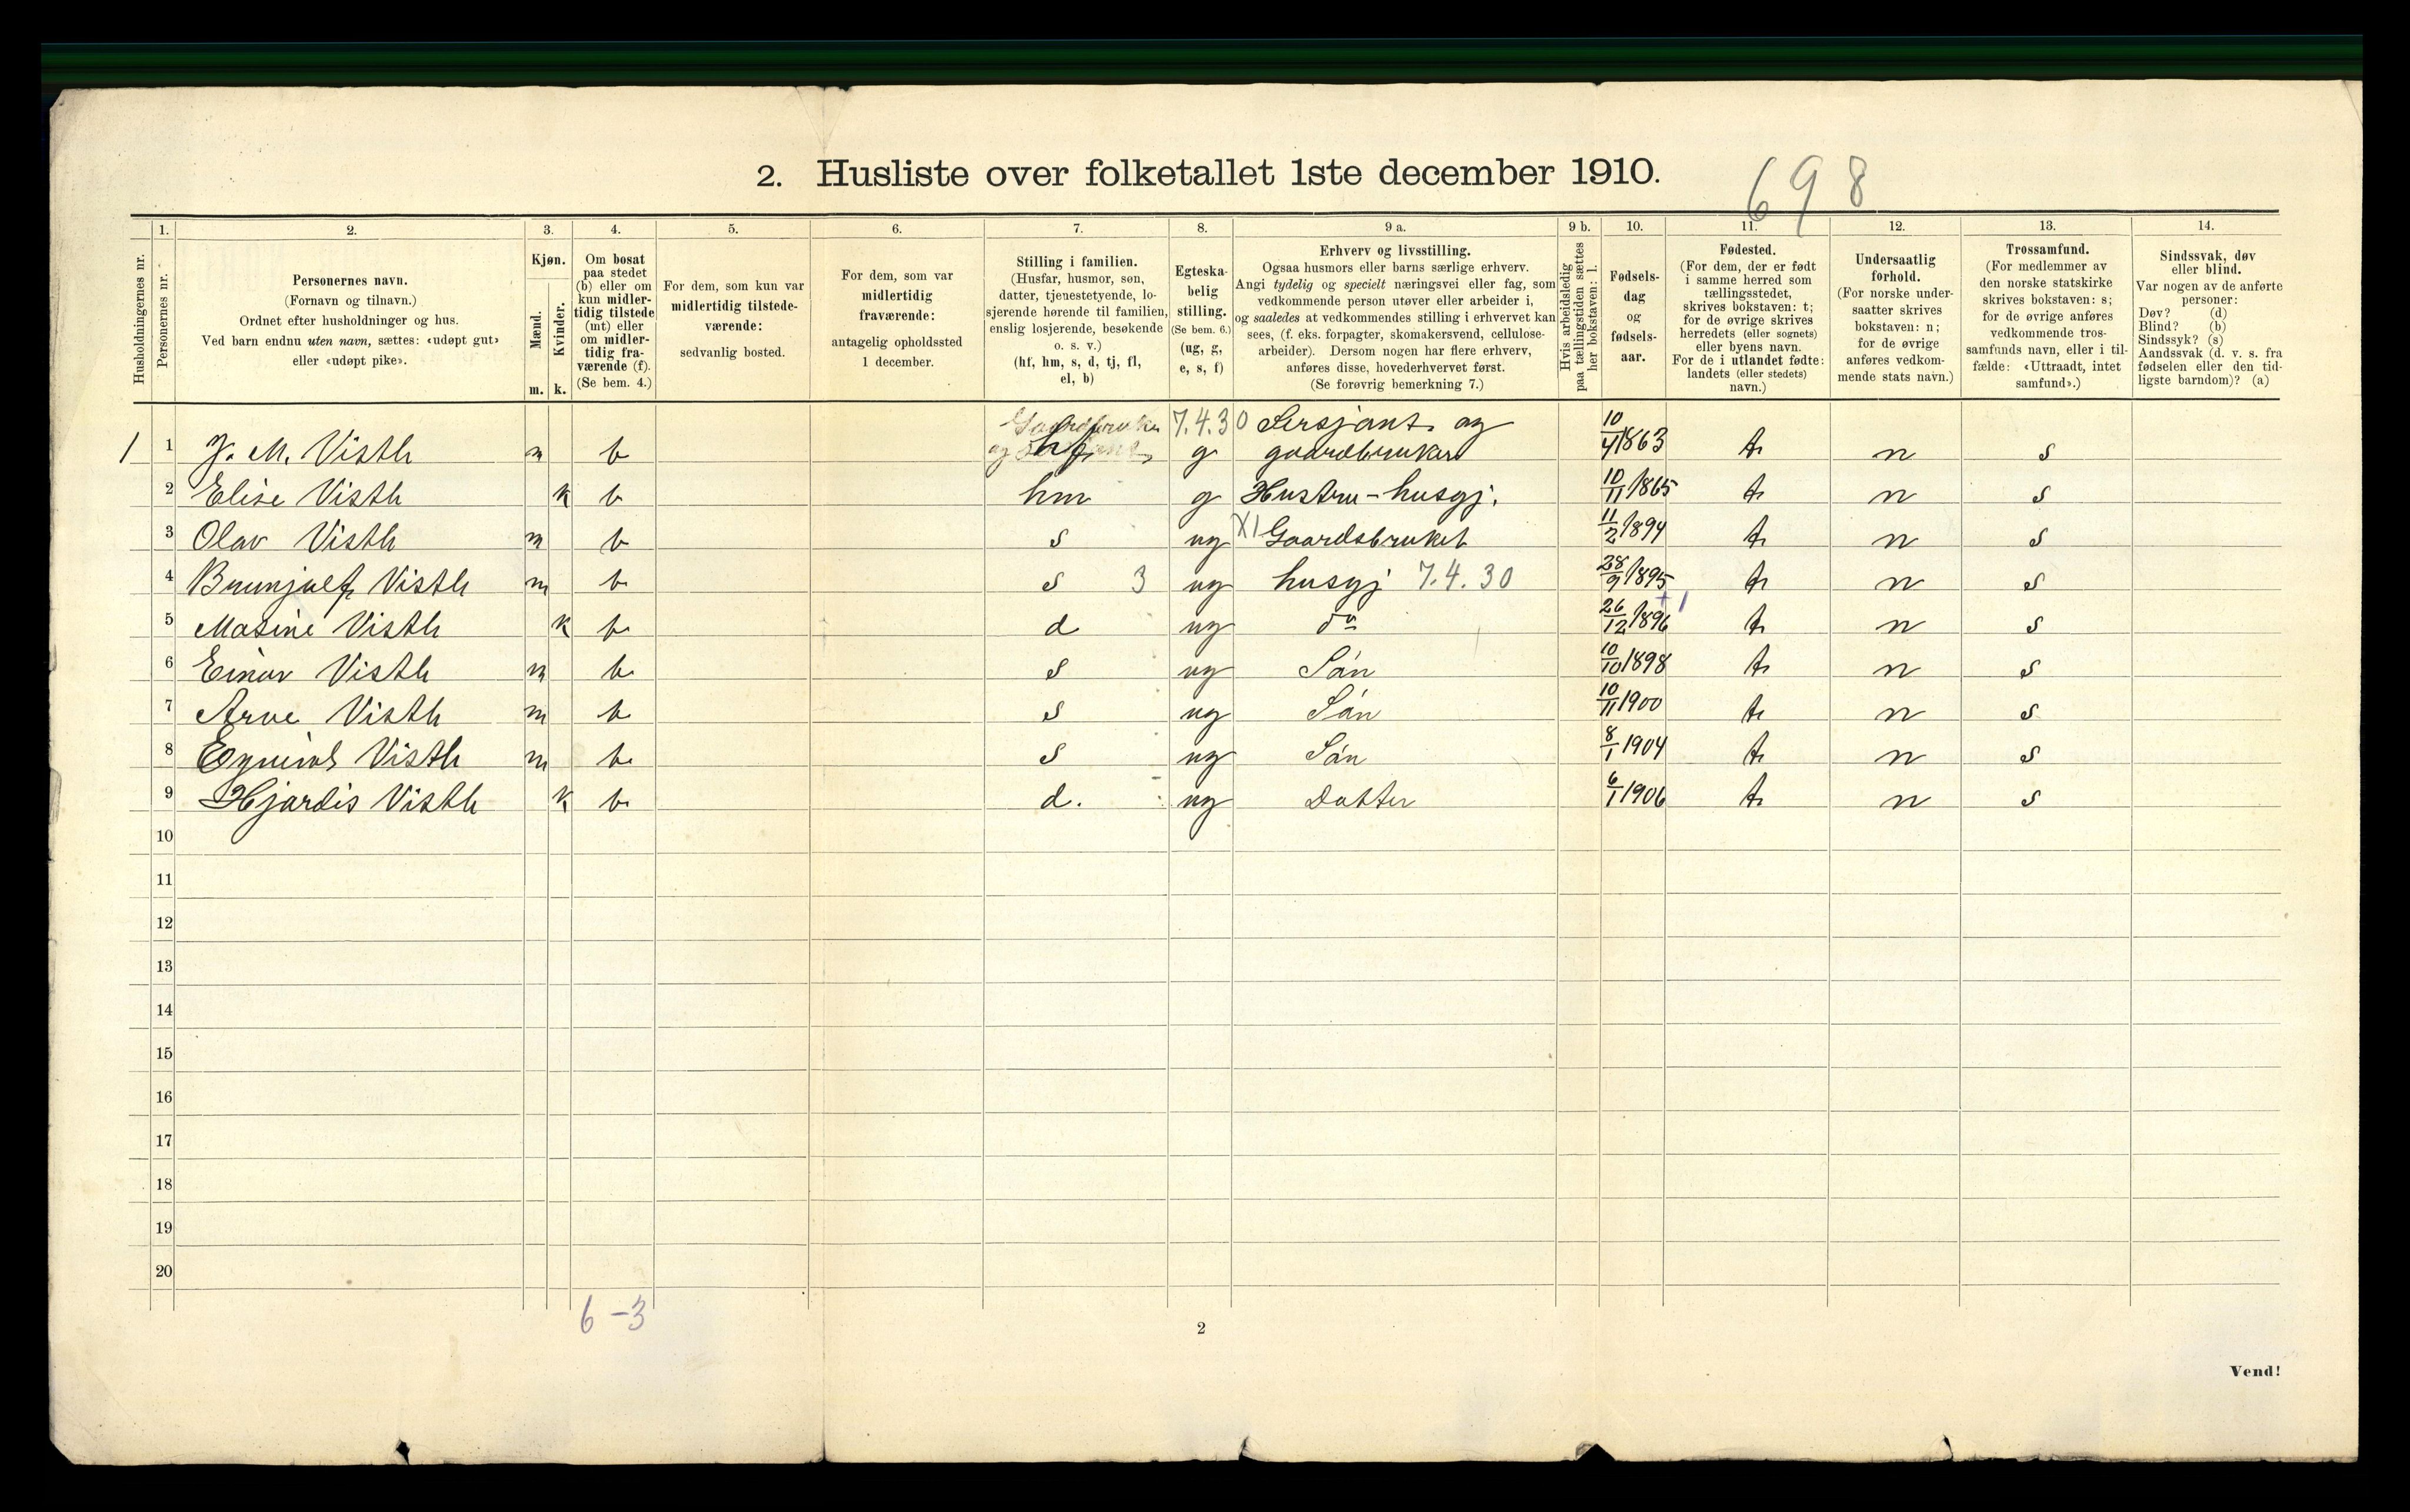 2. Husliste over folketallet 1ste december 1910.
698
1. 2. 3. 4. 5. 6. 7. 8. 9 a. 9 b. 10. 11. 12. 13. 14.
Husholdningernes nr.
Personernes nr.
Personernes navn.
(Fornavn og tilnavn.)
Ordnet efter husholdninger og hus.
Ved barn endnu uten navn, sættes: «udøpt gut»
eller «udøpt pike».
Kjøn.
Mænd.
Kvinder.
m. k.
Om bosat
paa stedet
(b) eller om
kun midler-
tidig tilstede
(mt) eller
om midler-
tidig fra-
værende (f).
(Se bem. 4.)
For dem, som kun var
midlertidig tilstede-
værende:
sedvanlig bosted.
For dem, som var
midlertidig
fraværende:
antagelig opholdssted
1 december.
Stilling i familien.
(Husfar, husmor, søn,
datter, tjenestetyende, lo-
sjerende hørende til familien,
enslig losjerende, besøkende
o. s. v.)
(hf, hm, s, d, tj, fl,
el, b)
Egteska-
belig
stilling.
(Se bem. 6.)
(ug, g,
e, s, f)
Erhverv og livsstilling.
Ogsaa husmors eller barns særlige erhverv.
Angi tydelig og specielt næringsvei eller fag, som
vedkommende person utøver eller arbeider i,
og saaledes at vedkommendes stilling i erhvervet kan
sees, (f. eks. forpagter, skomakersvend, cellulose-
arbeider). Dersom nogen har flere erhverv,
anføres disse, hovederhvervet først.
(Se forøvrig bemerkning 7.)
Hvis arbeidsledig
paa tællingstiden sættes
her bokstaven: l.
Fødsels-
dag
og
fødsels-
aar.
Fødested.
(For dem, der er født
i samme herred som
tællingsstedet,
skrives bokstaven: t;
for de øvrige skrives
herredets (eller sognets)
eller byens navn.
For de i utlandet fødte:
landets (eller stedets)
navn.)
Undersaatlig
forhold.
(For norske under-
saatter skrives
bokstaven: n;
for de øvrige
anføres vedkom-
mende stats navn.)
Trossamfund.
(For medlemmer av
den norske statskirke
skrives bokstaven: s;
for de øvrige anføres
vedkommende tros-
samfunds navn, eller i til-
fælde: «Uttraadt, intet
samfund».)
Sindssvak, døv
eller blind.
Var nogen av de anførte
personer:
Døv? (d)
Blind? (b)
Sindssyk? (s)
Aandssvak (d. v. s. fra
fødselen eller den tid-
ligste barndom)? (a)
Gaardbruker 7.4.30 Sersjant og
1 1 J. M. Visth m b og hf g gaardbruker 10/4 1863 t n s
2 Elise Visth k b hm g Hustru - husgj. 10/11 1865 t n s
3 Olav Visth m b s ug X1 Gaardsbruket 11/2 1894 t n s
4 Brunjulf Visth m b s 3 ug husgj 7.4.30 28/9 1895 t n s
+1
5 Masine Visth k b d ug do 26/12 1896 t n s
6 Einar Visth m b s ug Søn 10/10 1898 t n s
7 Arne Visth m b s ug Søn 10/11 1900 t n s
8 Visth m b s ug Søn 8/1 1904 t n s
9 Hjardis Visth k b d. ug Datter 6/1 1906 t n s
10
11
12
13
14
15
16
17
18
19
20
6-3
2
Vend!